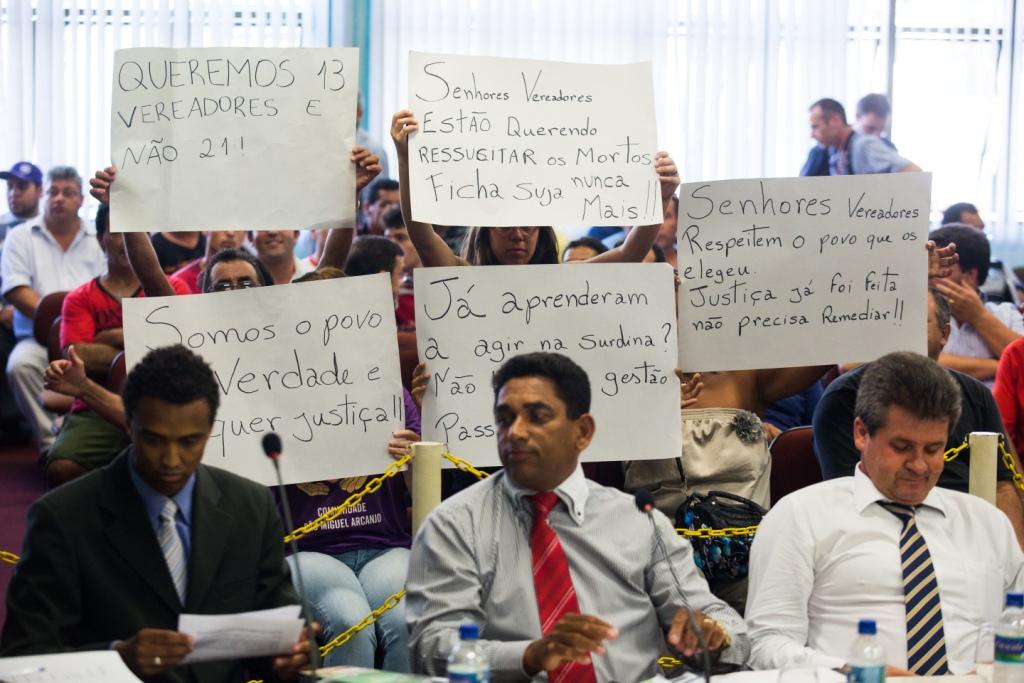 QUEREMOS 13
VEREADORES E
NÃO 21!
Senhores Vereadores
ESTÃO Querendo
RESSUCITAR os Mortos
Ficha Suja nunca
Mais!!
Senhores Vereadores
Respeitem o povo que os
elegeu.
Justiça já foi feita
não precisa Remediar!!
Somos o povo
Verdade e
quer justiça!!
Já aprenderam
a agir na surdina?
Não gestão
Pass
COMUNIDADE
MIGUEL ARCANJO